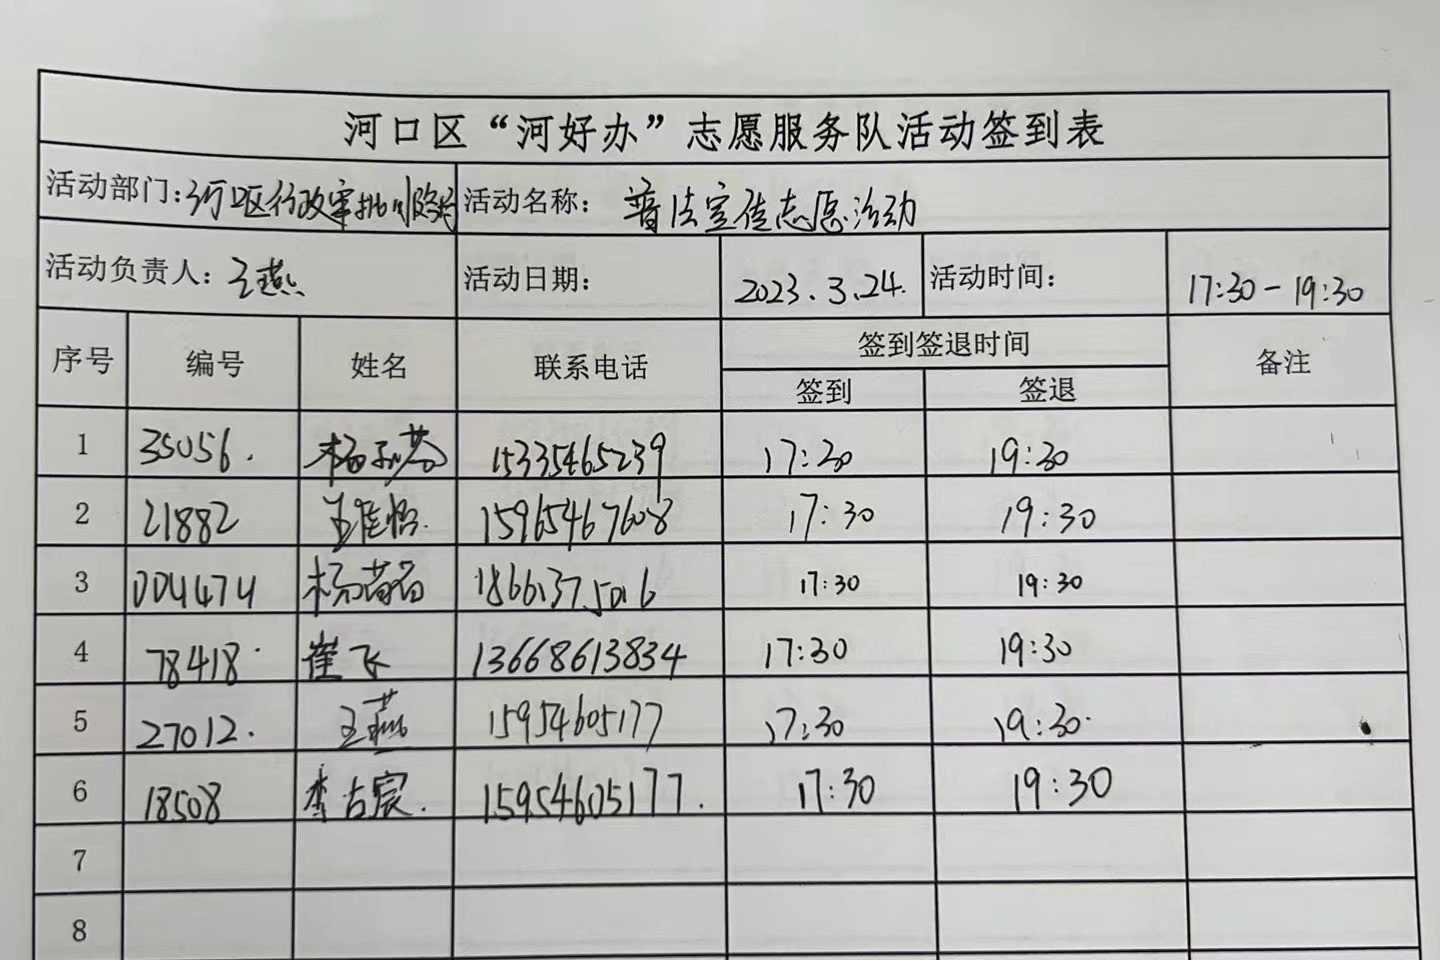 河口区“河好办”志愿服务队活动签到表
活动部门：河口区行政审批服务 活动名称：普法宣传志愿活动
活动负责人：王燕 活动日期： 2023.3.24. 活动时间： 17:30-19:30
序号 编号 姓名 联系电话 签到签退时间 备注
签到 签退
1 35056. 杨 15335465239 17:30 19:30
2 21882 王佳怡. 15965467608 17:30 19:30
3 004474 杨 18661375016 17:30 19:30
4 78418. 崔飞 13668613834 17:30 19:30
5 27012. 王燕 15954605177 17:30 19:30.
6 18508 李古宸. 15954605177. 17:30 19:30
7
8